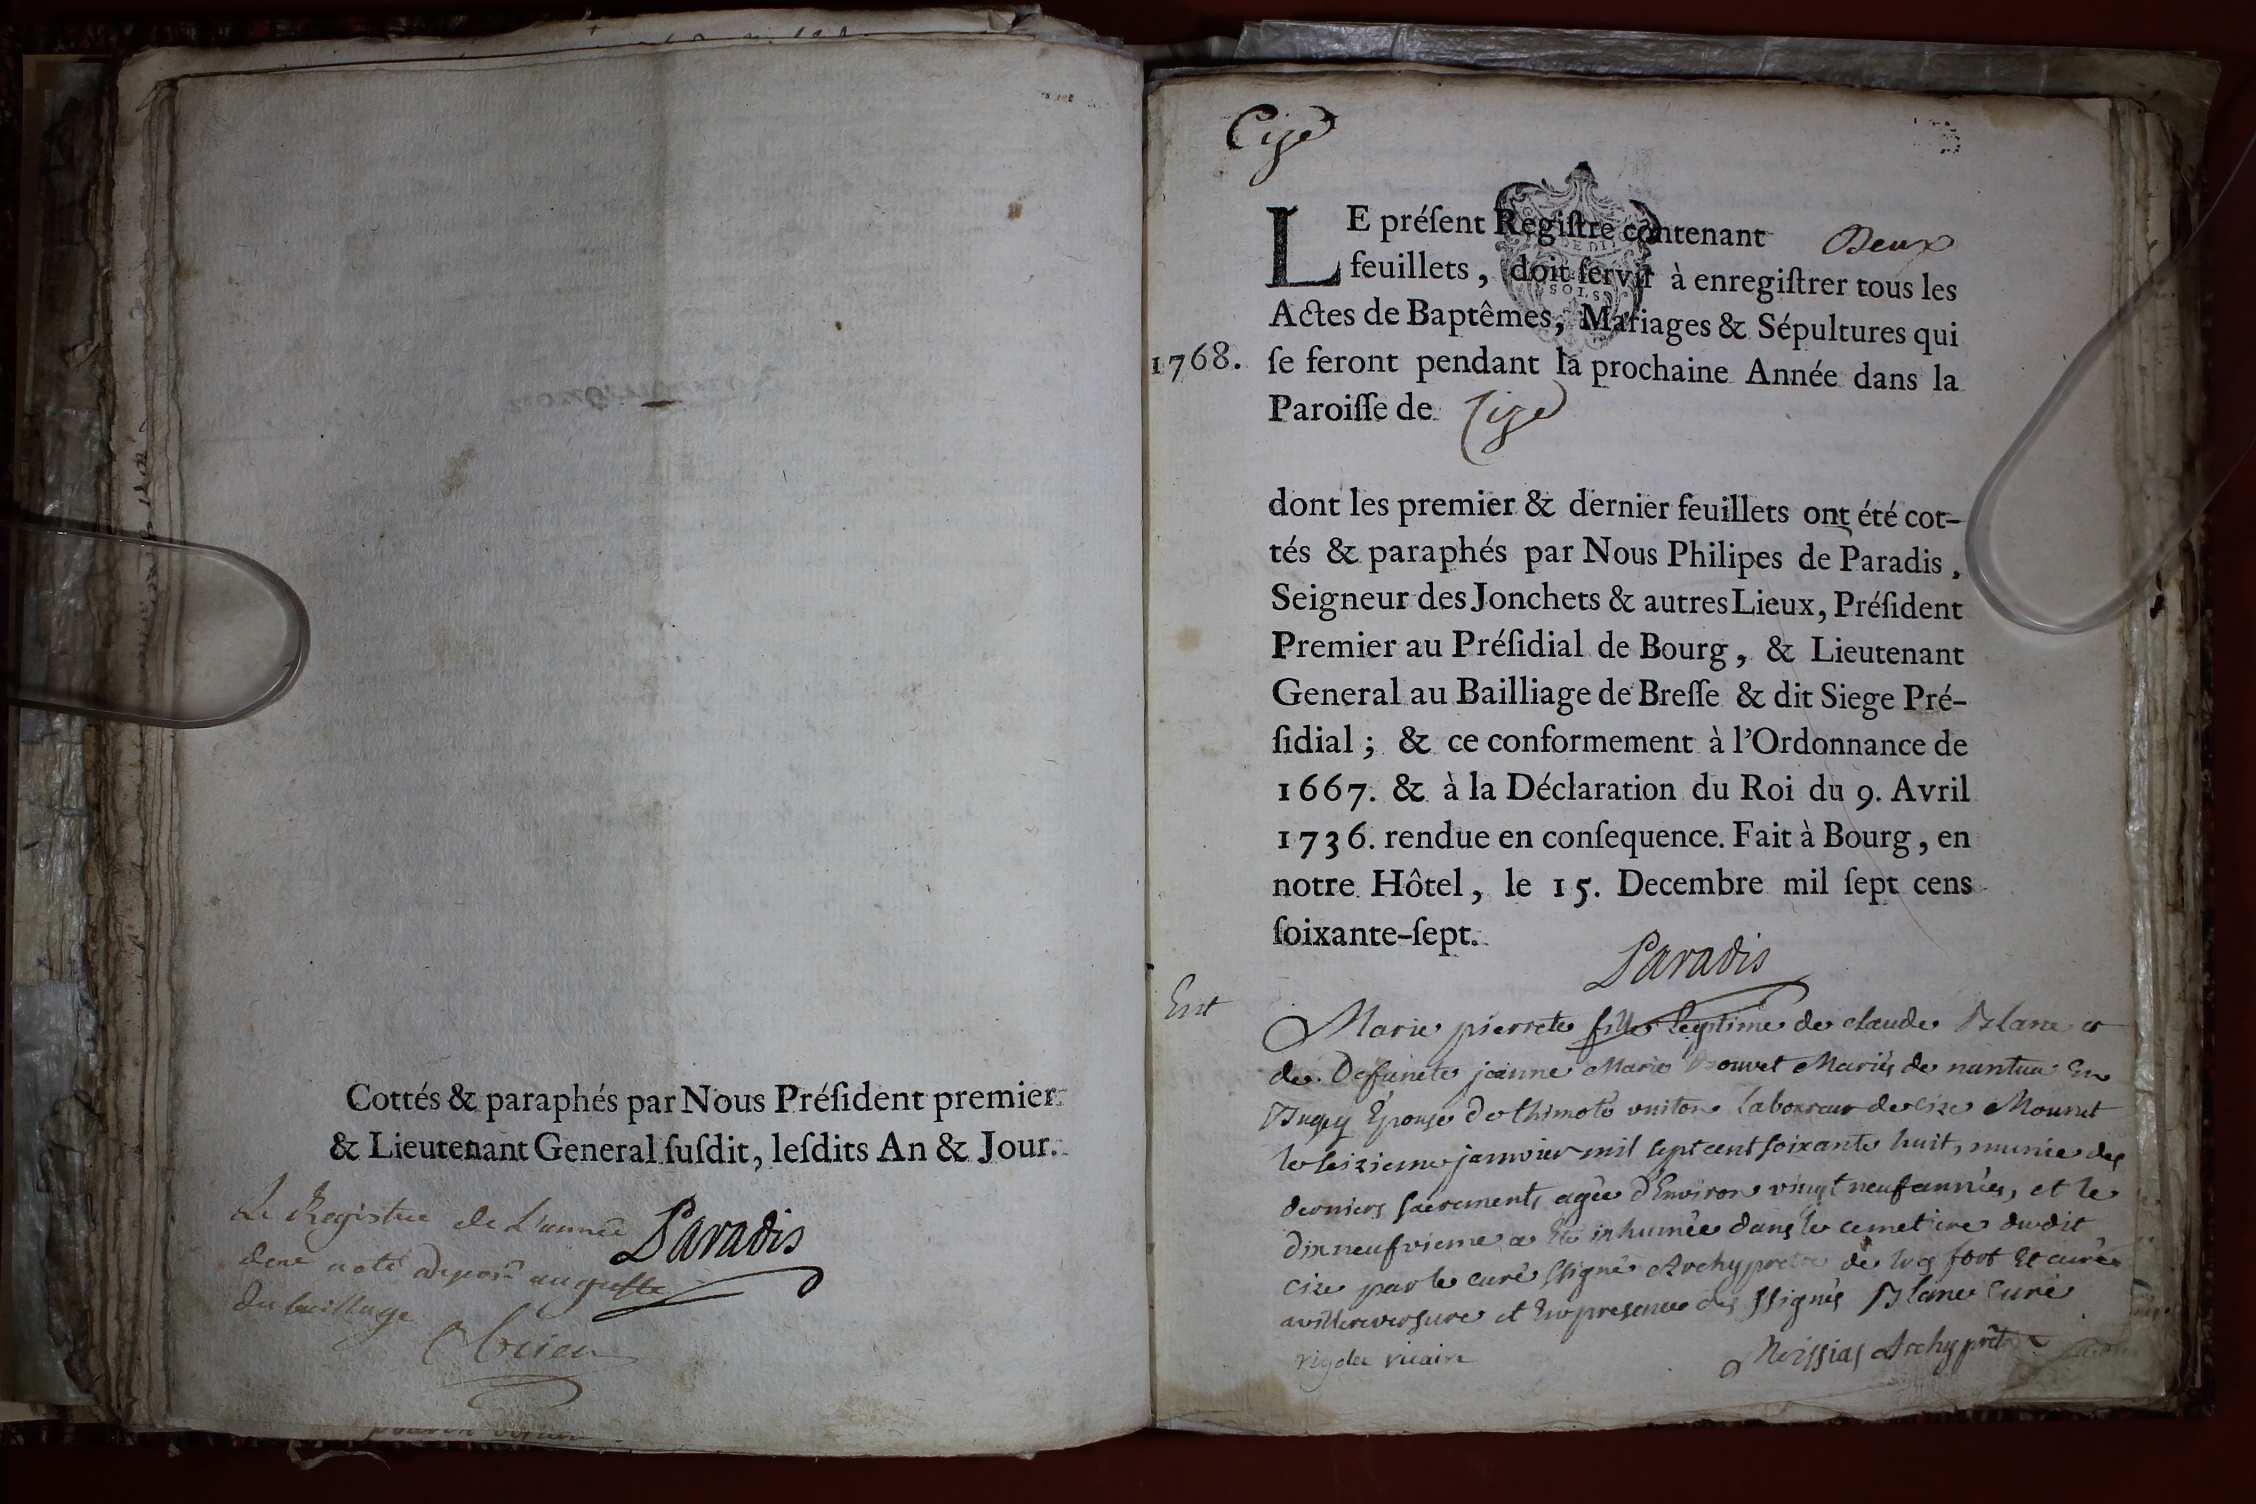 Cottés & paraphés par Nous Préſident premier
& Lieutenant General ſuſdit, leſdits An & Jour.
Le Registre de L'année
Paradis
du bailliage
Cize
LE préſent Regiſtre contenant Deux
feuillets, doit ſervir à enregiſtrer tous les
SOLS
Actes de Baptêmes, Mariages & Sépultures qui
1768. ſe feront pendant la prochaine Année dans la
Paroiſſe de Cize
dont les premier & dernier feuillets ont été cot-
tés & paraphés par Nous Philipes de Paradis,
Seigneur des Jonchets & autres Lieux, Préſident
Premier au Préſidial de Bourg, & Lieutenant
General au Bailliage de Breſſe & dit Siege Pré-
ſidial; & ce conformement à l'Ordonnance de
1667. & à la Déclaration du Roi du 9. Avril
1736. rendue en conſequence. Fait à Bourg, en
notre Hôtel, le 15. Decembre mil ſept cens
ſoixante-ſept.
Paradis
Ent
Marie pierrete fille legitime de claude Blanc et
de Defuncte jeanne Marie Bouvet Mariés de nantua En
Bugey Epouse de thimoté vuiton laboureur de cize Mourut
le seizieme janvier mil sept cent soixante huit, munie des
derniers sacrements agée d'Environ vingt neuf années, et le
dix neufvieme a été inhumée dans le cemetiere dudit
cize par le curé ssigné Archypretre de et curé
a villereversure et En presence des ssignés Blanc curé
vicaire Archypretre